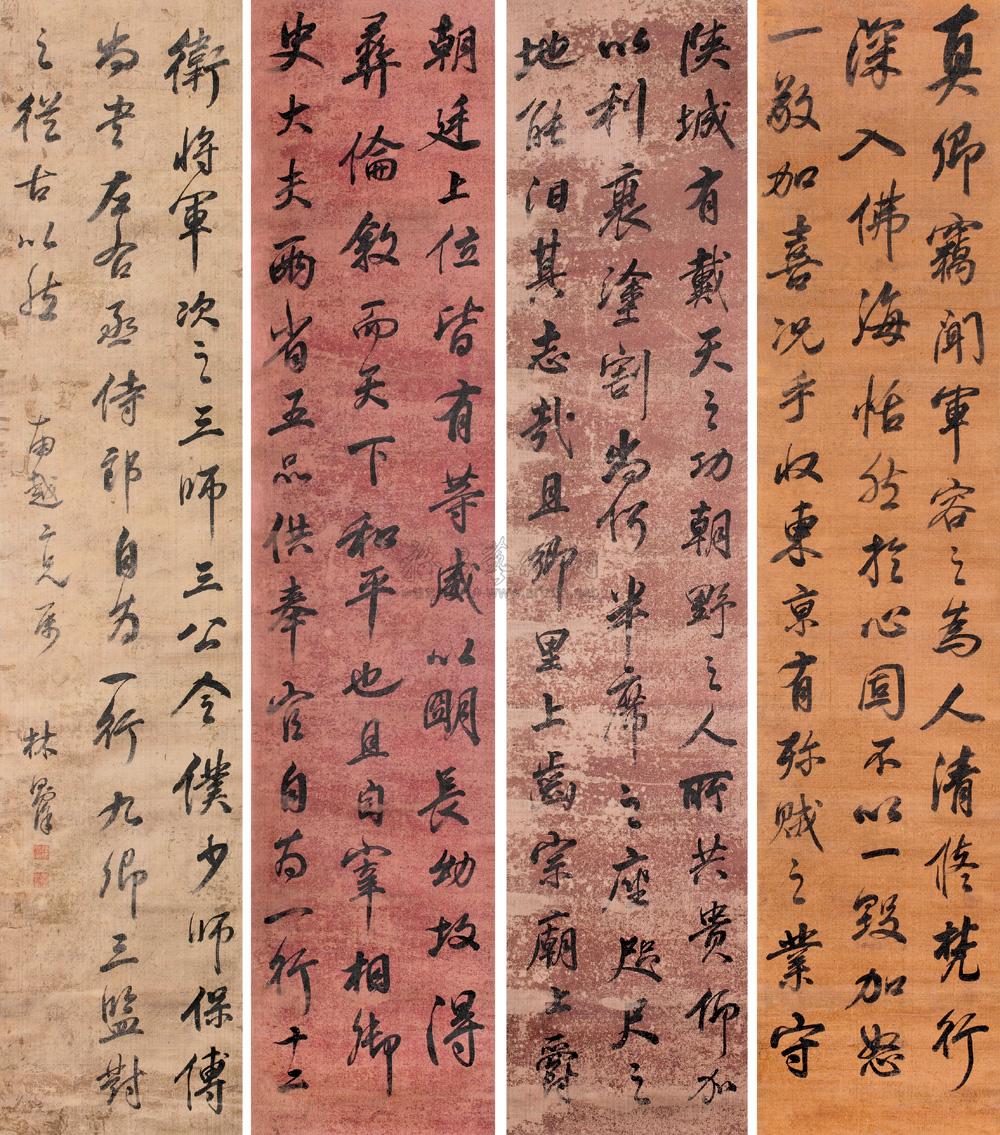 真卿竊聞軍容之為人清修梵行
深入佛海恬然於心固不以一毀加怒
一敬加喜況手收東京有殄賊之業守
陝城有戴天之功朝野之人所共貴仰加
以利裏塗割尚何半席之座咫尺之
地能汩其志哉且鄉里上齒宗廟上爵
朝廷上位皆有等威以明長幼故得
彝倫敘而天下和平也且自宰相御
史大夫兩省五品供奉官自為一行十二
衛將軍次之三師三公令僕少師保傅
尚書左右丞侍郎自為一行九卿三監對
之從古以然
南越二兄屬
林皋